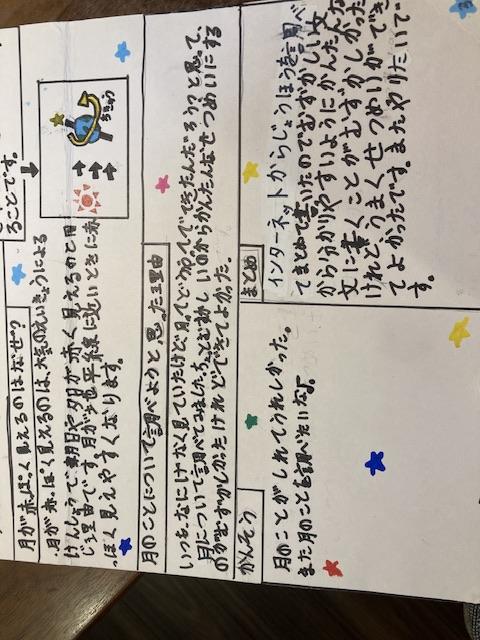 ることです。
ちきゅう
月が赤っぽく見えるのはなぜ?
月が赤っぽく見えるのは、大気のえいきょうによる
げんしょうで朝日や夕日が赤く見えるのと同
じ理由です。月が地平線に近いときに赤
っぽく見えやすくなります。
月のことについて調べようと思った理由
いつもなにげなく見ていたけど、月ってどうやってできたんだろう?と思って、
月について調べてみました。ちょっと難しいのからかんたんなせつめいにする
のがむずかしかったけれどできてよかった。
まとめ
インターネットからじょうほうを調べ
てまとめて書いたのでむずかしい文
から分かりやすいようにかんたんな
文に書くことがむずかしかった
けれど、うまくせつめいができ
てよかったです。またやりたいで
す。
かんそう
月のことがしれてうれしかった。
また月のことを調べたいな♪